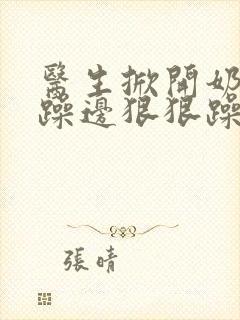 醫生掀開奶
躁邊狠狠躁
張晴